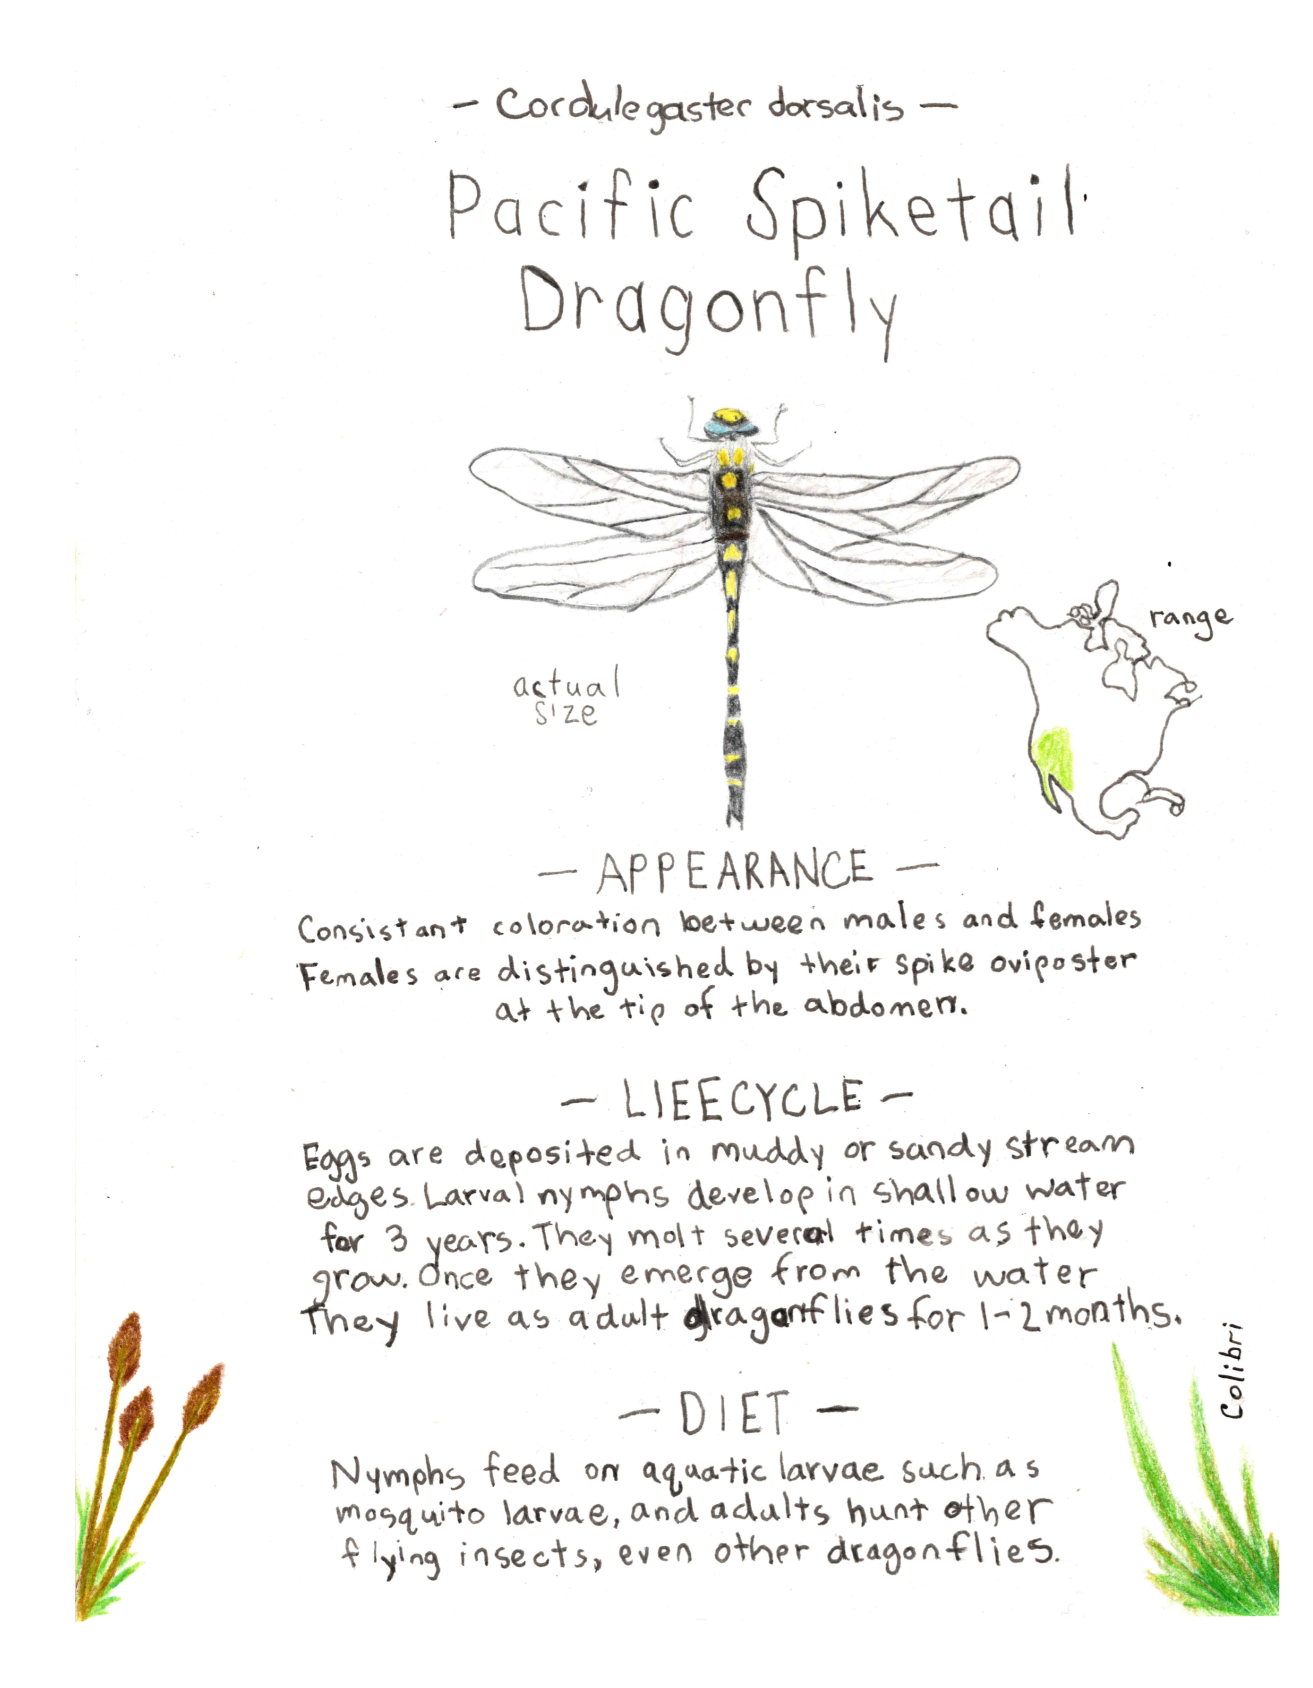 — Cordulegaster dorsalis —
Pacific Spiketail
Dragonfly
range
actual
size
— APPEARANCE —
Consistant coloration between males and females
Females are distinguished by their spike oviposter
at the tip of the abdomen.
— LIEECYCLE —
Eggs are deposited in muddy or sandy stream
edges. Larval nymphs develop in shallow water
for 3 years. They molt several times as they
grow. Once they emerge from the water
They live as adult dragonflies for 1-2 months.
Colibri
— DIET —
Nymphs feed on aquatic larvae such as
mosquito larvae, and adults hunt other
flying insects, even other dragonflies.